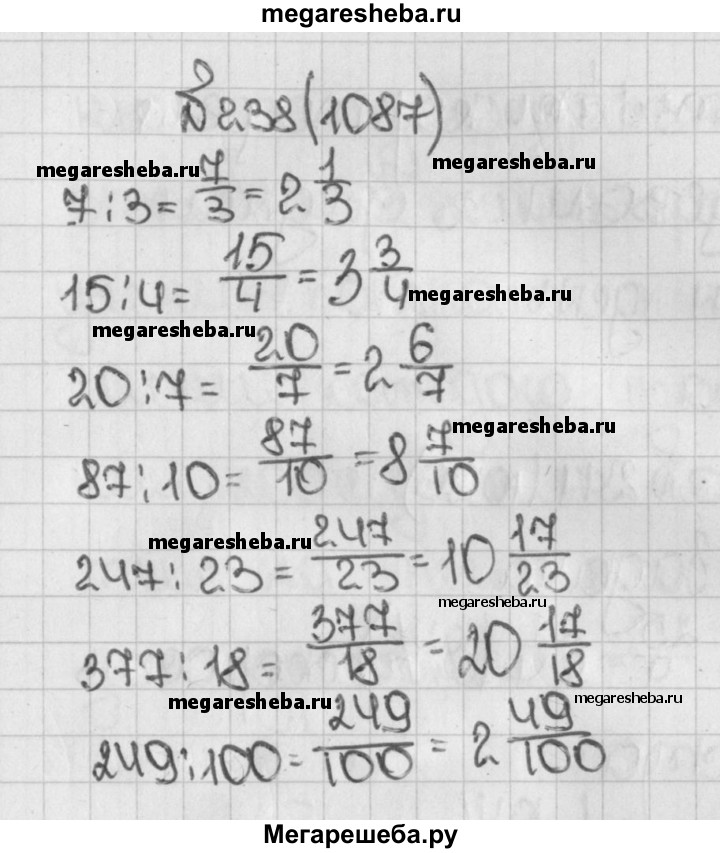 megaresheba.ru
№238(1087)
megaresheba.ru
megaresheba.ru
7:3= 7/3 = 2 1/3
15:4= 15/4 = 3 3/4
megaresheba.ru
megaresheba.ru
20:7= 20/7 = 2 6/7
megaresheba.ru
87:10= 87/10 = 8 7/10
megaresheba.ru
247:23= 247/23 = 10 17/23
megaresheba.ru
377:18= 377/18 = 20 17/18
megaresheba.ru
megaresheba.ru
249:100= 249/100 = 2 49/100
Мегарешеба.ру